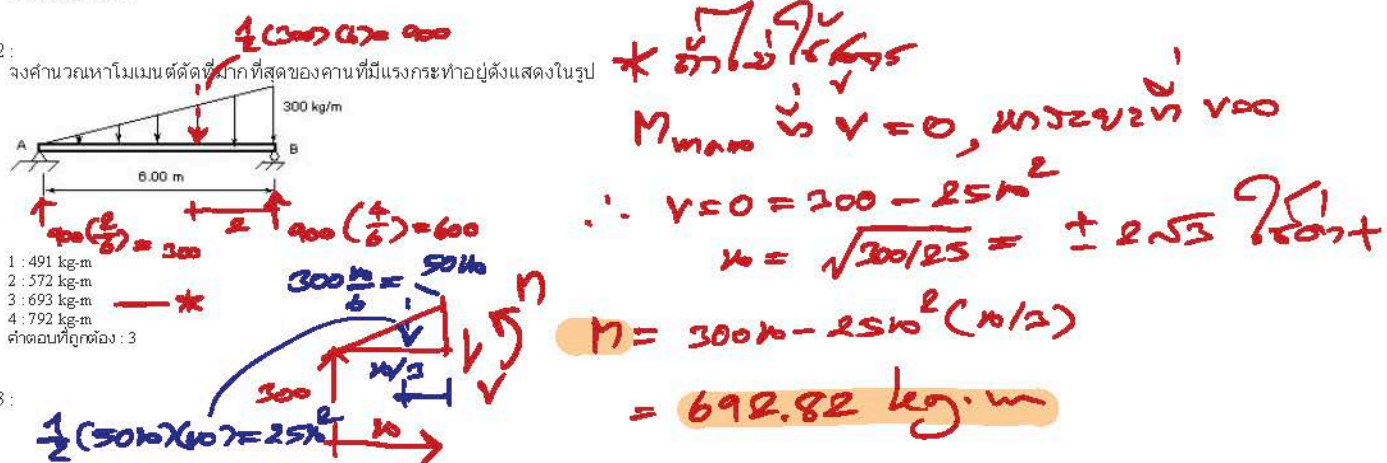 ½(300)(6) = 900
2 :
จงคำนวณหาโมเมนต์ดัดที่มากที่สุดของคานที่มีแรงกระทำอยู่ดังแสดงในรูป
300 kg/m
A
B
6.00 m
900(2/6) = 300
2
900(4/6) = 600
1 : 491 kg-m
2 : 572 kg-m
3 : 693 kg-m
4 : 792 kg-m
คำตอบที่ถูกต้อง : 3
300 x/6 = 50x
M
V
x/3
300
x
½(50x)(x) = 25x²
3 :
* ถ้าไม่ใช้สูตร
Mmax ที่ V = 0, หาระยะที่ V=0
∴ V = 0 = 300 - 25x²
x = √300/25 = ± 2√3 ใช้ค่า +
M = 300x - 25x² (x/3)
= 692.82 kg·m